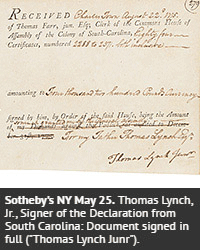 RECEIVED Charles Town August 22d 1775.
of Thomas Farr, jun. Esq; Clerk of the Commons House of
Assembly of the Colony of South-Carolina, Eighty four
Certificates, numbered
amounting to Four thousand two hundred Pounds Currency
signed by him, by Order of the said House, being the Amount
Thomas Lynch Esqr.
Thomas Lynch Junr.
Sotheby's NY May 25. Thomas Lynch,
Jr., Signer of the Declaration from
South Carolina: Document signed in
full ("Thomas Lynch Junr").